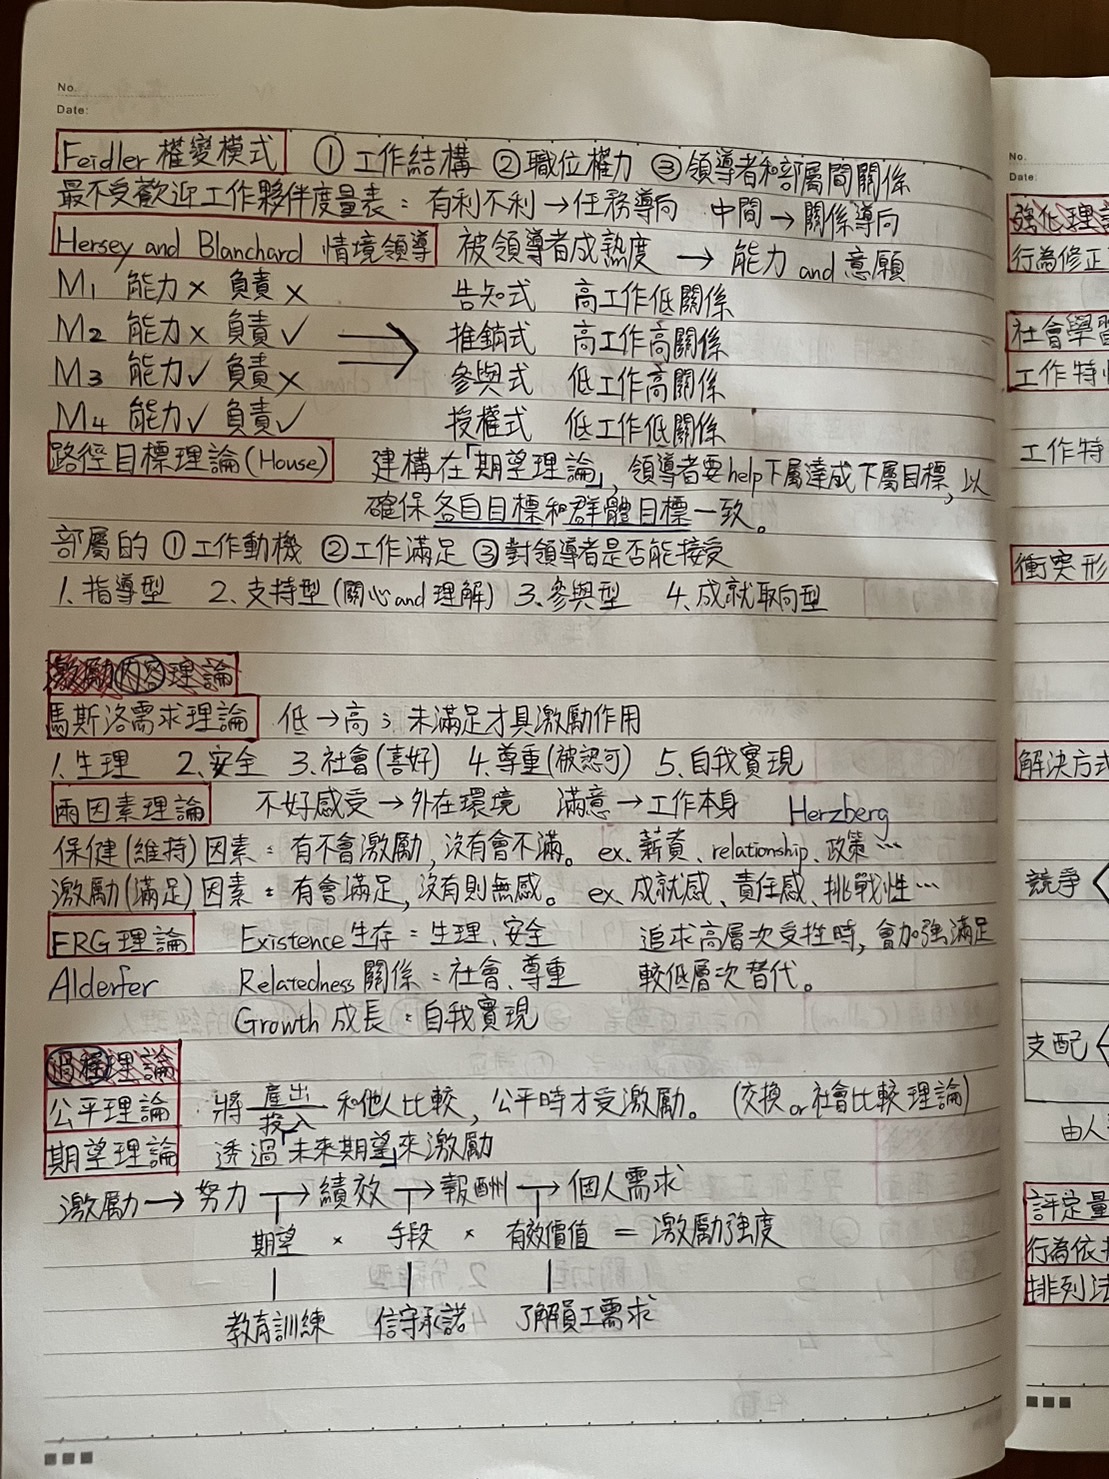 No.
Date:
Feidler 權變模式 ①工作結構 ②職位權力 ③領導者和部屬間關係
最不受歡迎工作夥伴度量表：有利不利→任務導向 中間→關係導向
Hersey and Blanchard 情境領導 被領導者成熟度 → 能力 and 意願
M1 能力× 負責× 告知式 高工作低關係
M2 能力× 負責✓ 推銷式 高工作高關係
M3 能力✓ 負責× 參與式 低工作高關係
M4 能力✓ 負責✓ 授權式 低工作低關係
路徑目標理論(House) 建構在「期望理論」,領導者要help下屬達成下屬目標,以
確保各自目標和群體目標一致。
部屬的 ①工作動機 ②工作滿足 ③對領導者是否能接受
1.指導型 2.支持型(關心and理解) 3.參與型 4.成就取向型
激勵內容理論
馬斯洛需求理論 低→高；未滿足才具激勵作用
1.生理 2.安全 3.社會(喜好) 4.尊重(被認可) 5.自我實現
兩因素理論 不好感受→外在環境 滿意→工作本身 Herzberg
保健(維持)因素：有不會激勵,沒有會不滿。 ex.薪資、relationship、政策…
激勵(滿足)因素：有會滿足,沒有則無感。 ex.成就感、責任感、挑戰性…
ERG理論 Existence生存：生理、安全 追求高層次受挫時,會加強滿足
Alderfer Relatedness關係：社會、尊重 較低層次替代。
Growth 成長：自我實現
過程理論
公平理論 將 產出/投入 和他人比較,公平時才受激勵。(交換or社會比較理論)
期望理論 透過「未來期望」來激勵
激勵→努力→績效→報酬→個人需求
期望 × 手段 × 有效價值 = 激勵強度
教育訓練 信守承諾 了解員工需求
No.
Date:
強化理
行為修正
社會學習
工作特
工作特
衝突形
解決方式
競爭
支配
由人
評定量
行為依
排列法